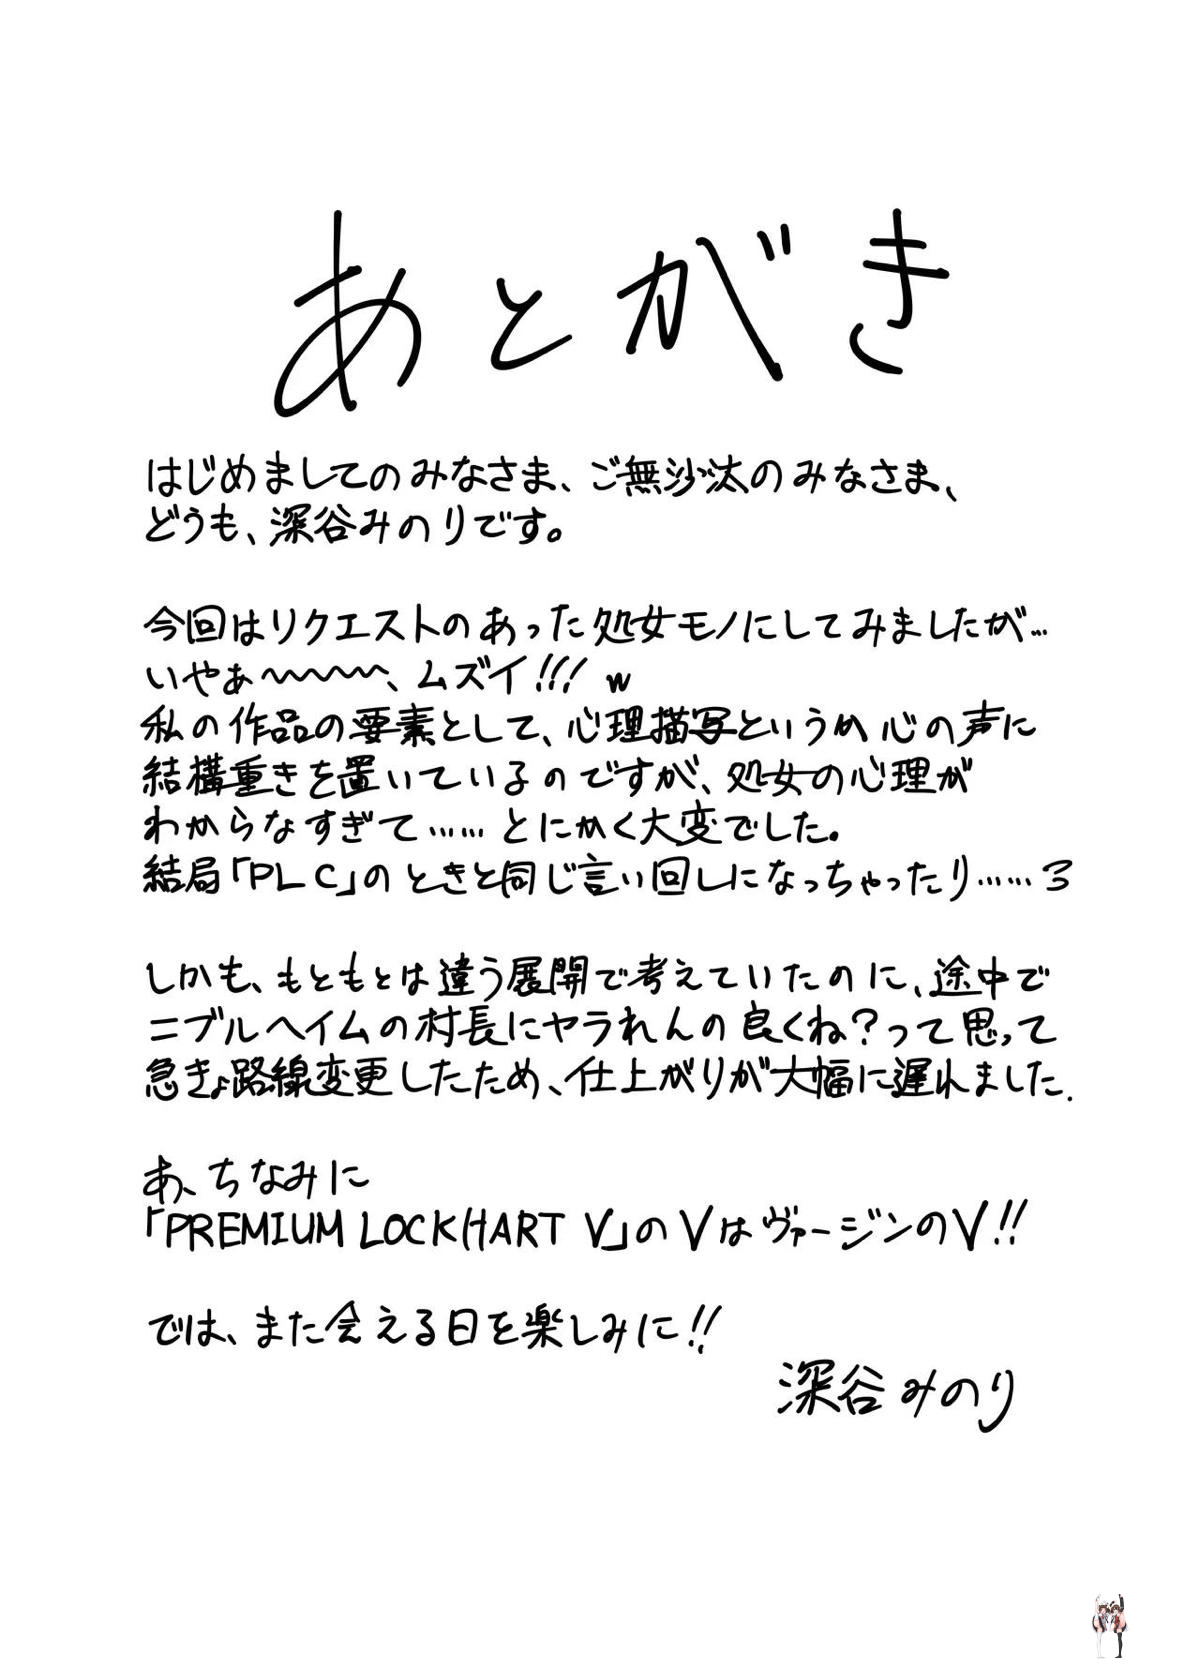 あとがき
はじめましてのみなさま、ご無沙汰のみなさま、
どうも、深谷みのりです。
今回はリクエストのあった処女モノにしてみましたが…
いやぁ〜〜〜〜、ムズイ!!! w
私の作品の要素として、心理描写というか心の声に
結構重きを置いているのですが、処女の心理が
わからなすぎて……とにかく大変でした。
結局「PLC」のときと同じ言い回しになっちゃったり……3
しかも、もともとは違う展開で考えていたのに、途中で
ニブルヘイムの村長にヤラれんの良くね?って思って
急きょ路線変更したため、仕上がりが大幅に遅れました.
あ、ちなみに
「PREMIUM LOCKHART V」のVはヴァージンのV!!
では、また会える日を楽しみに!!
深谷みのり